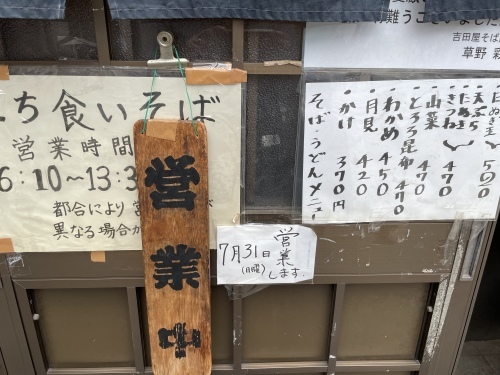 ち食いそば
営業時間
6:10～13:3
都合により営
異なる場合が
営業中
7月31日
(日曜)
営業
します
難うございました
吉田屋そば
草野 彩
そば・うどんメニュー
かけ 370円
月見 420
わかめ 450
とろろ昆布 470
山菜 470
きつね
たぬき
天ぷら
500